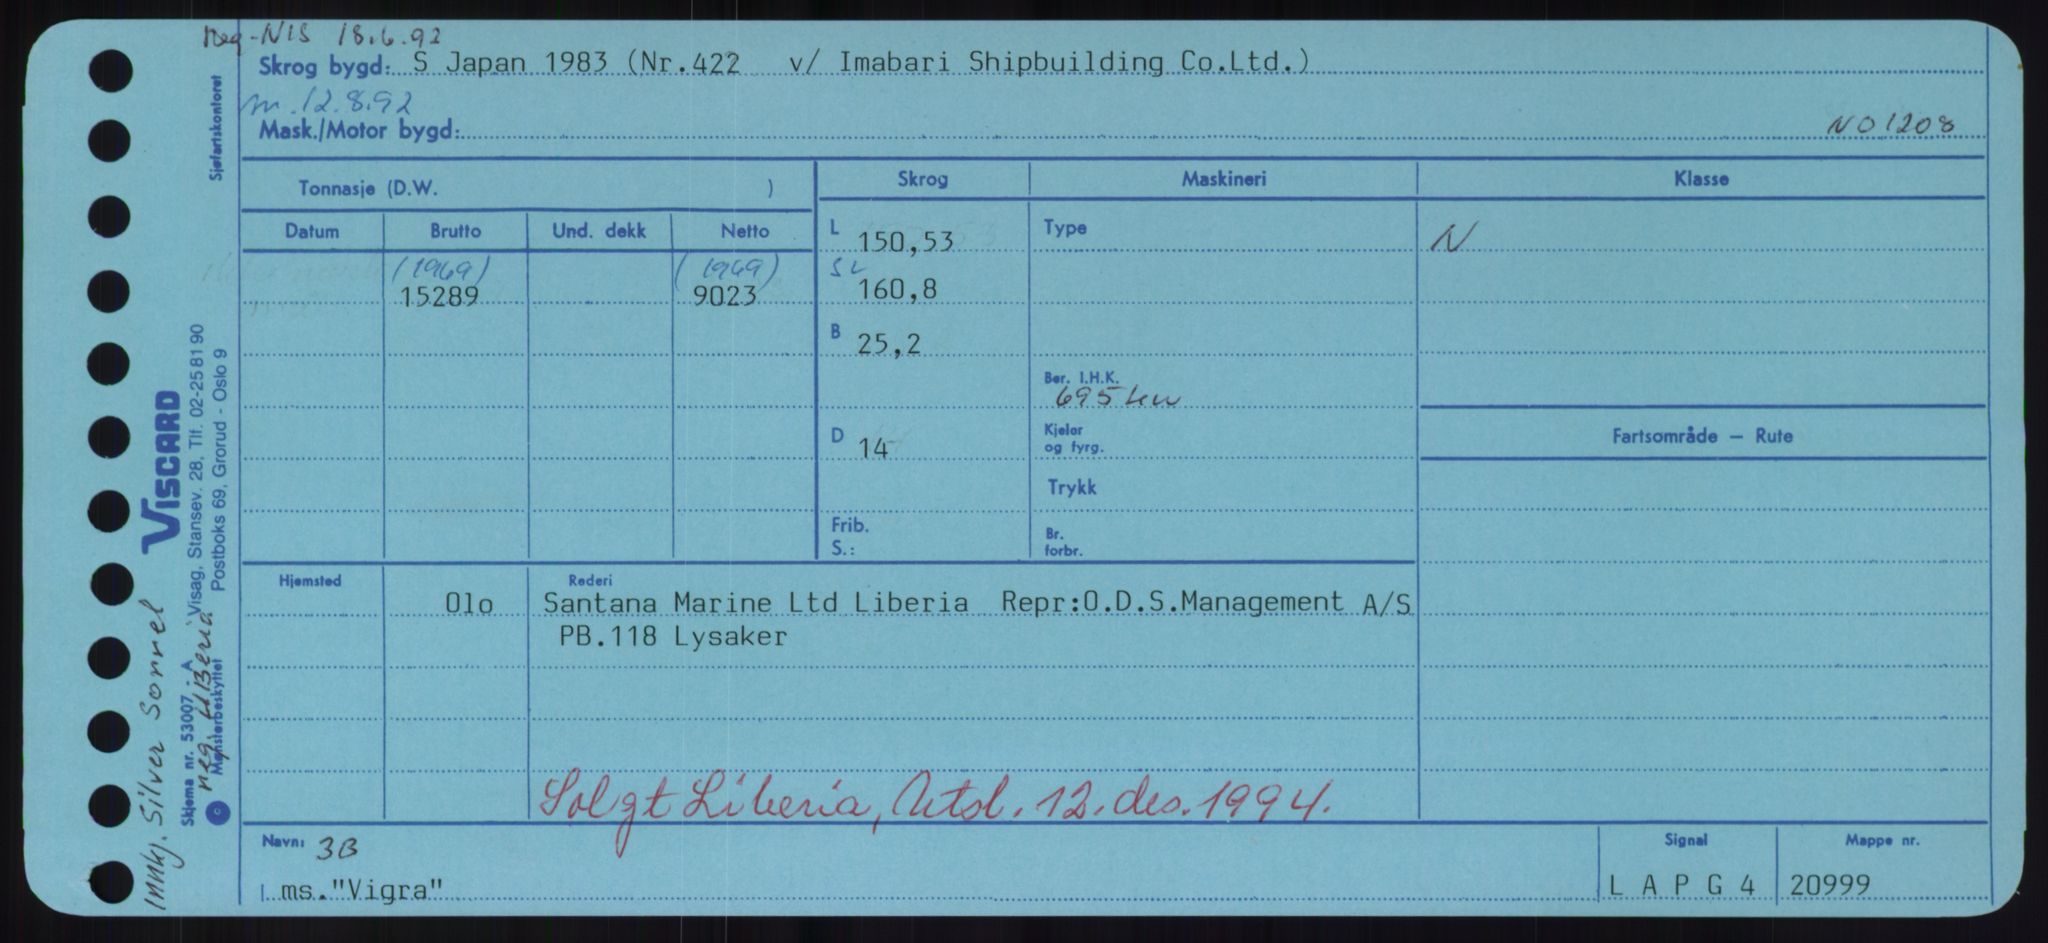 Reg-NIS 18.6.92
Skrog bygd: S Japan 1983 (Nr.422 v/ Imabari Shipbuilding Co.Ltd.)
m. 12.8.92
Mask./Motor bygd: NO1208
Sjøfartskontoret
Tonnasje (D.W. )
Skrog Maskineri Klasse
Datum Brutto Und. dekk Netto
L 150,53 Type N
(1969) (1969)
15289 9023
SL 160,8
B 25,2
Ber. I.H.K.
695 kw
Kjeler
og fyrg.
D 14
Fartsområde – Rute
Trykk
Frib.
S.:
Br.
forbr.
Hjemsted Rederi
Olo Santana Marine Ltd Liberia Repr:O.D.S.Management A/S
PB.118 Lysaker
Solgt Liberia, Utsl. 12. des. 1994.
Navn: 3B
ms."Vigra"
Signal
L A P G 4
Mappe nr.
20999
VISCARD
Visag, Stansev. 28, Tlf. 02-25 81 90
Postboks 69, Grorud - Oslo 9
Skjema nr. 53007 - A
Mønsterbeskyttet
Innkj. Silver Sorrel
reg. Liberia